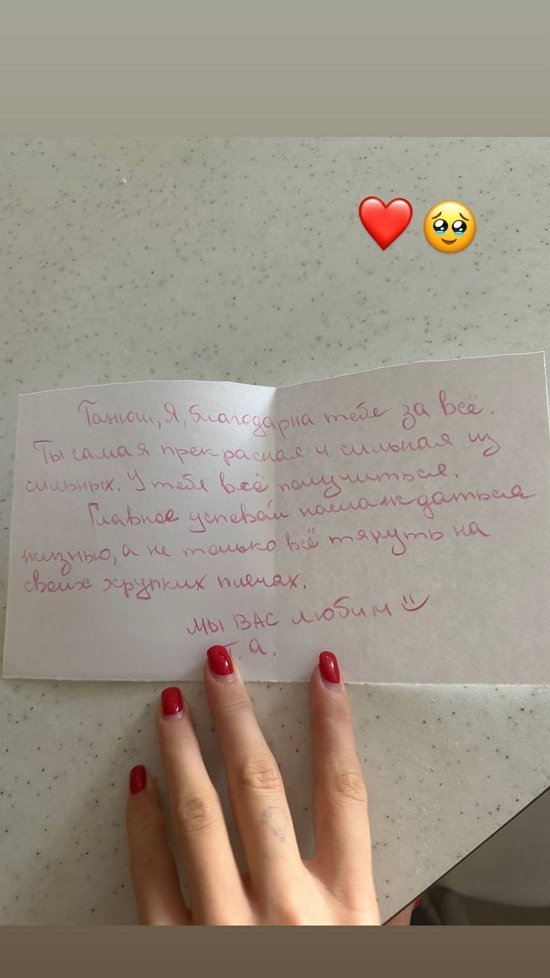 Танюш, Я, благодарна тебе за всё.
Ты самая прекрасная и сильная из
сильных. У тебя всё получиться.
Главное успевай наслаждаться
жизнью, а не только всё тянуть на
своих хрупких плечах.
МЫ ВАС любим
Т.А.